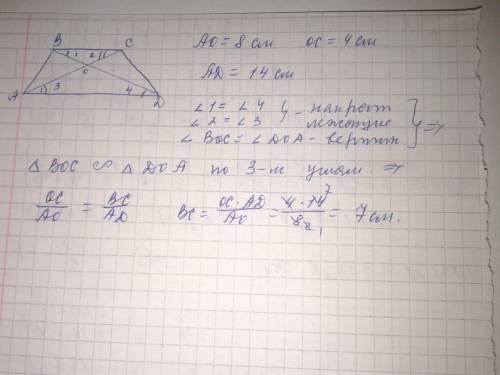 B C
1 2
O
A 3 4 D
AO = 8 см OC = 4 см
AD = 14 см
∠1 = ∠4
∠2 = ∠3 } - накрест лежащие
∠BOC = ∠DOA - вертик } =>
△BOC ∽ △DOA по 3-м углам. =>
OC/AO = BC/AD BC = OC · AD/AO = 4 · 14/8 = 7 см.